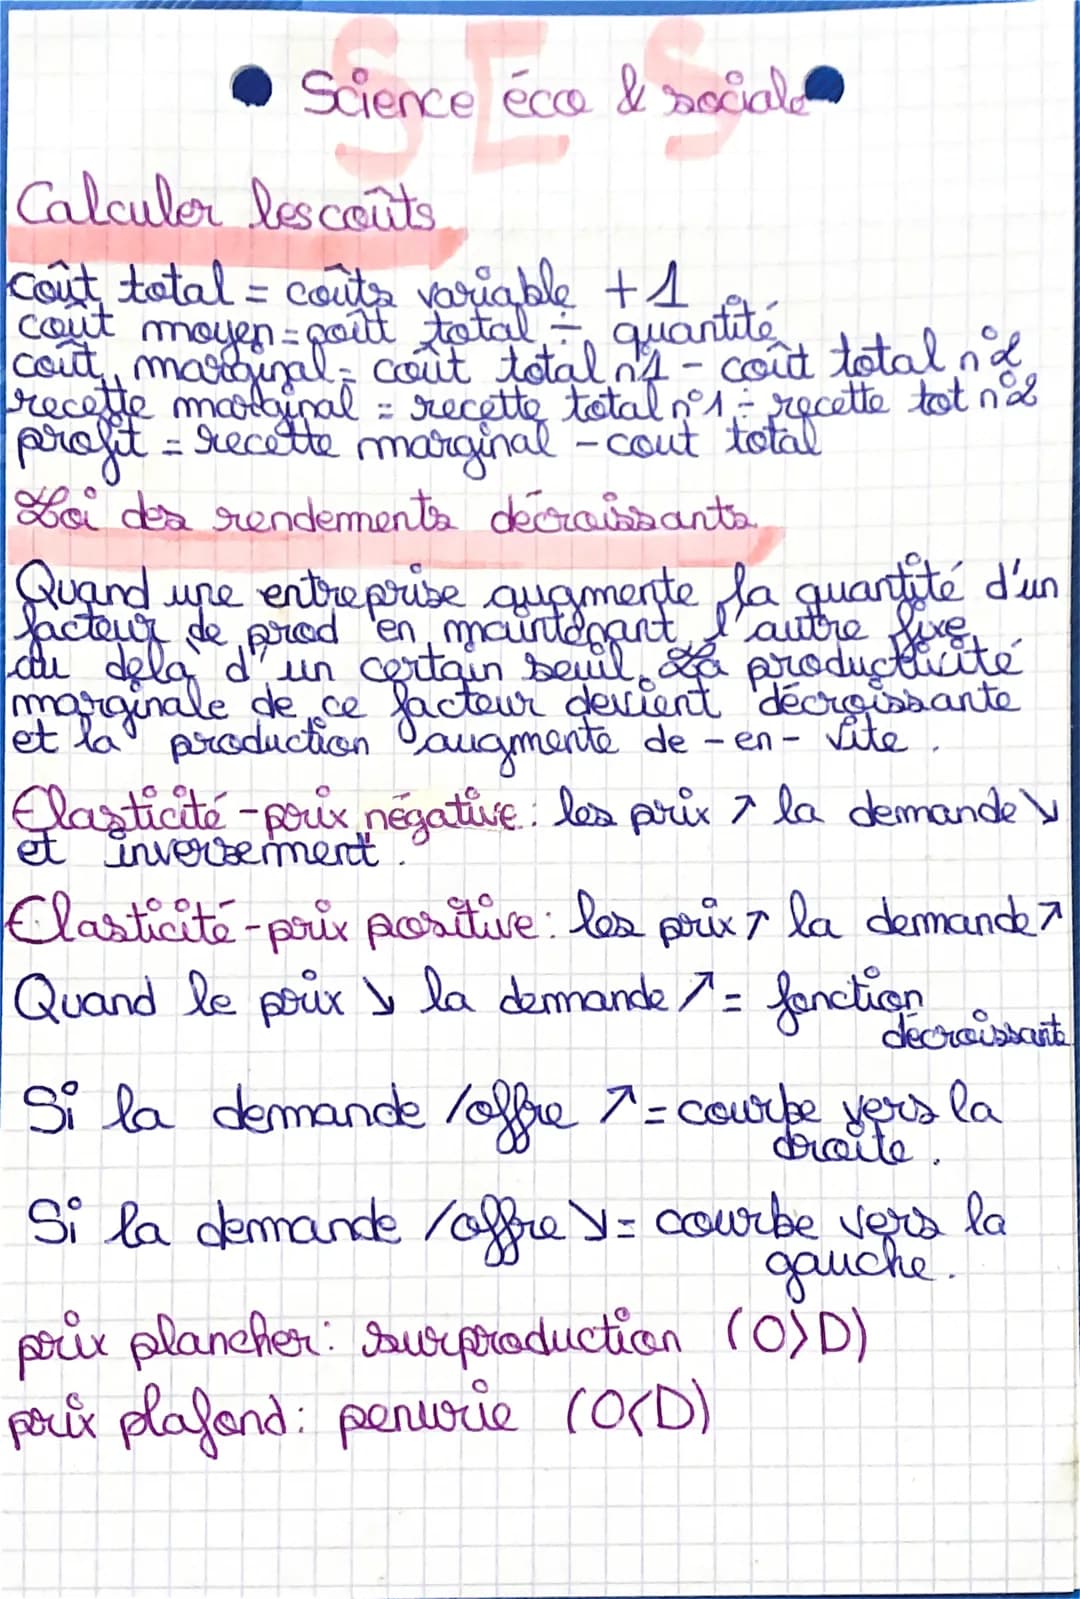 SES
Science éco & sociale
Calculer les coûts
coût total = coûts variable + 1
coût moyen = coût total ÷ quantité
coût marginal = coût total n°1 - coût total n°2
recette marginal = recette total n°1 ÷ recette tot n°2
profit = recette marginal - cout total
Loi des rendements décroissants
Quand une entreprise augmente la quantité d'un
facteur de prod en maintenant l'autre fixe
au delà d'un certain seuil. La producticité
marginale de ce facteur devient décroissante
et la production augmente de - en - vite.
Elasticité-prix négative : les prix ↗ la demande ↘
et "inversement".
Elasticité-prix positive : les prix ↗ la demande ↗
Quand le prix ↘ la demande ↗ = fonction
décroissante
Si la demande /offre ↗ = courbe vers la
droite.
Si la demande /offre ↘ = courbe vers la
gauche.
prix plancher : surproduction (O>D)
prix plafond : penurie (O<D)